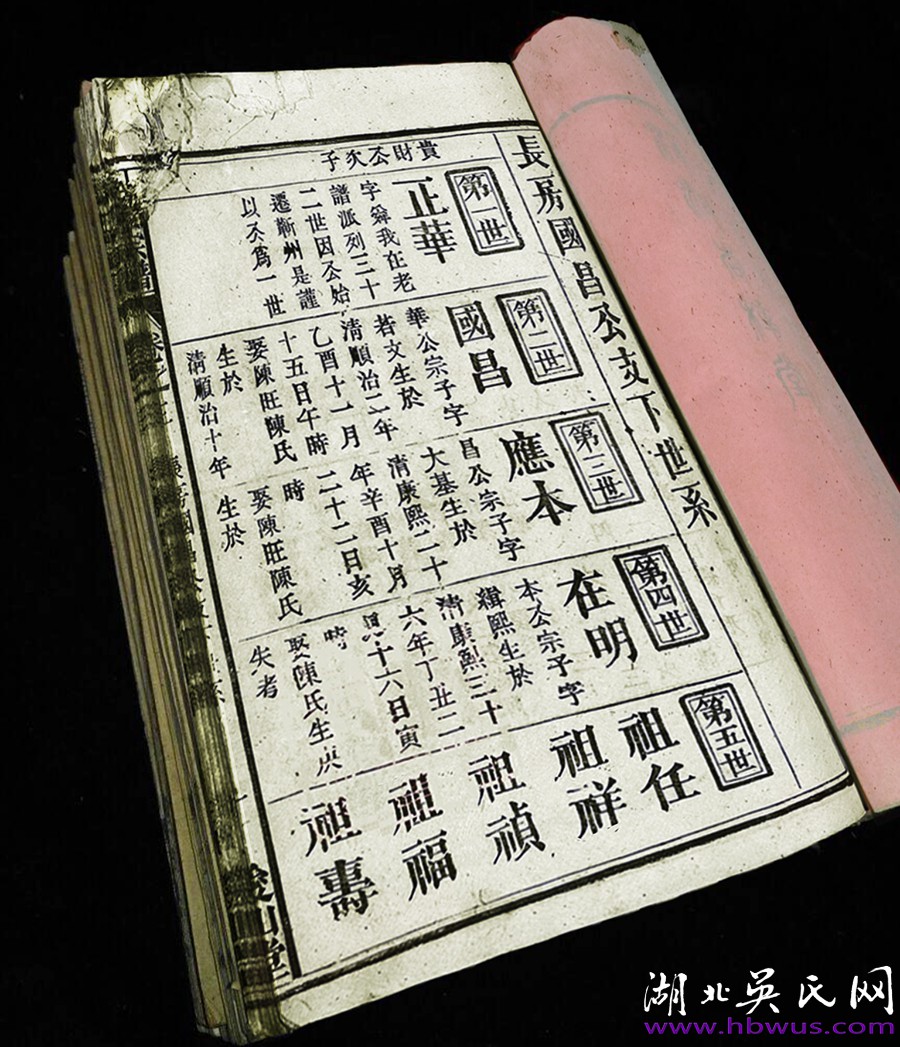 長房國昌公支下世系
第一世
貴財公次子
正華
字舜我在老
譜派列三十
二世因公始
遷蘄州是謹
以公爲一世
第二世
國昌
華公宗子字
若文生於
清順治二年
乙酉十一月
十五日午時
娶陳旺陳氏
生於
清順治十年
第三世
應本
昌公宗子字
大基生於
清康熙二十
年辛酉十月
二十二日亥
時
娶陳旺陳氏
生於
第四世
在明
本公宗子字
緝熙生於
清康熙三十
六年丁丑二
月十六日寅
時
娶陳氏生庚
失考
第五世
祖任
祖祥
祖禎
祖福
祖壽
湖北吳氏网
www.hbwus.com